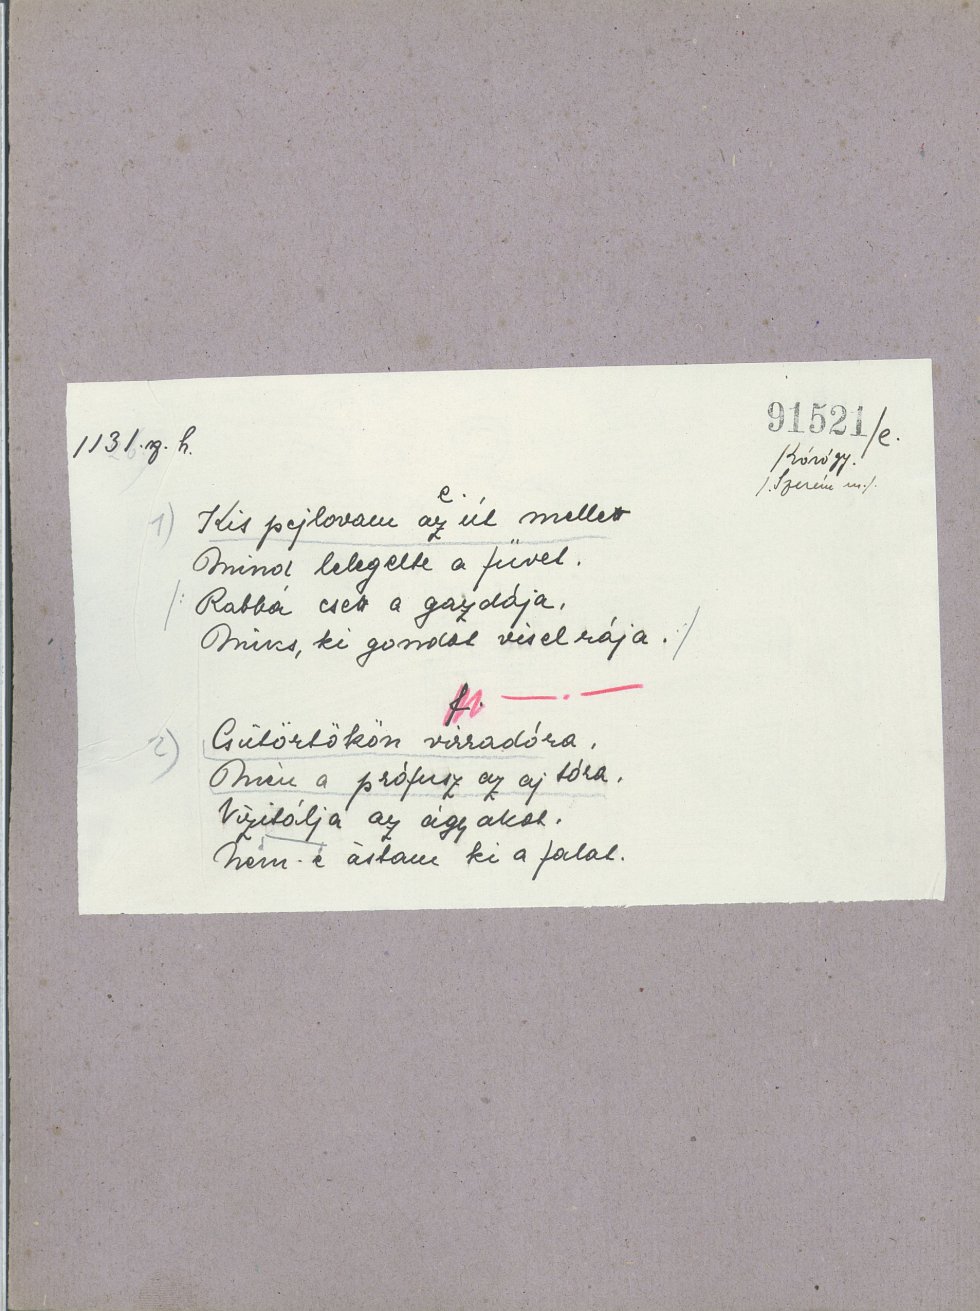 91521/e.
1131. sz. h.
Kórógy.
/.Szerém m./.
e.
1) Kis pejlovam az út mellett
Mind lelegelte a füvet.
/: Rabbá esett a gazdája,
Nincs, ki gondot visel rája. :/
f.
2) Csütörtökön virradóra,
Mén a prófusz az ajtóra.
Vizitálja az ágyakot.
Nem-é ástam ki a falat.